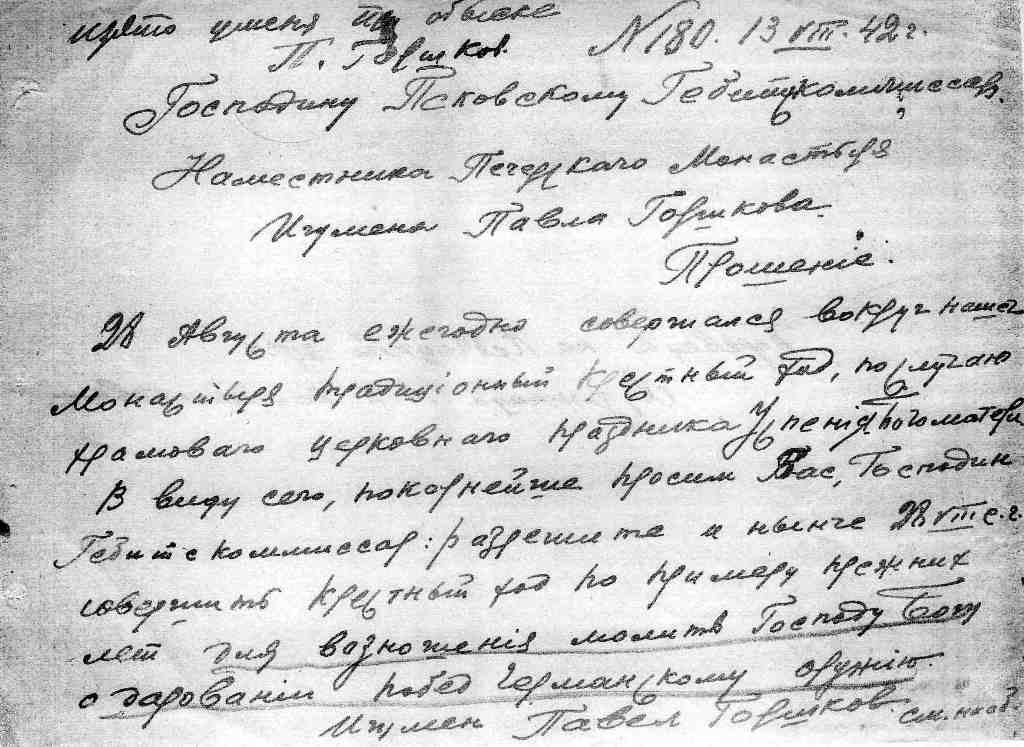 изято у меня при обыске
П. Горшков.
№ 180. 13 VIII. 42 г.
Господину Псковскому Гебитскоммиссару.
Наместника Печерскаго Монастыря
Игумена Павла Горшкова.
Прошеніе.
28 Августа ежегодно совершался вокруг нашего
Монастыря традиціонный крестный ход, по случаю
храмоваго церковнаго праздника Успенія Богоматери
В виду сего, покорнейше просим Вас, Господин
Гебитскоммиссар: разрешите и нынче 28 VIII с. г.
совершить крестный ход по примеру прежних
лет для вазношенія молитв Господу Богу
о дарованіи побед Германскому оружію.
Игумен Павел Горшков.
см. на об.